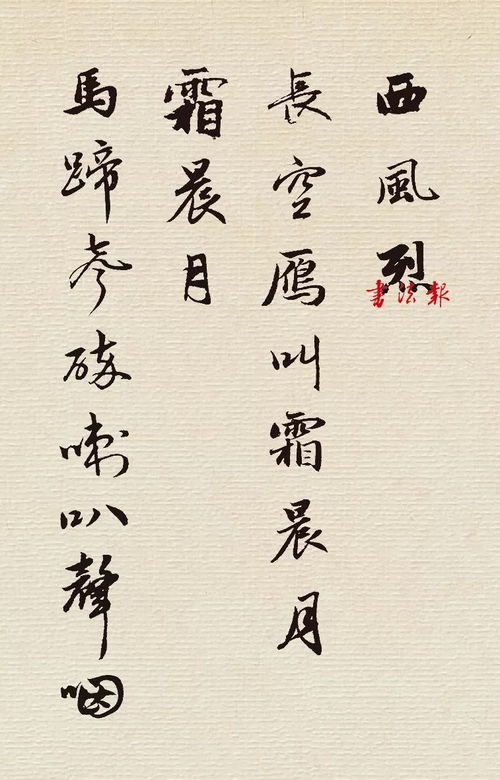 西風烈
長空鴈叫霜晨月
霜晨月
馬蹄聲碎喇叭聲咽
書法報